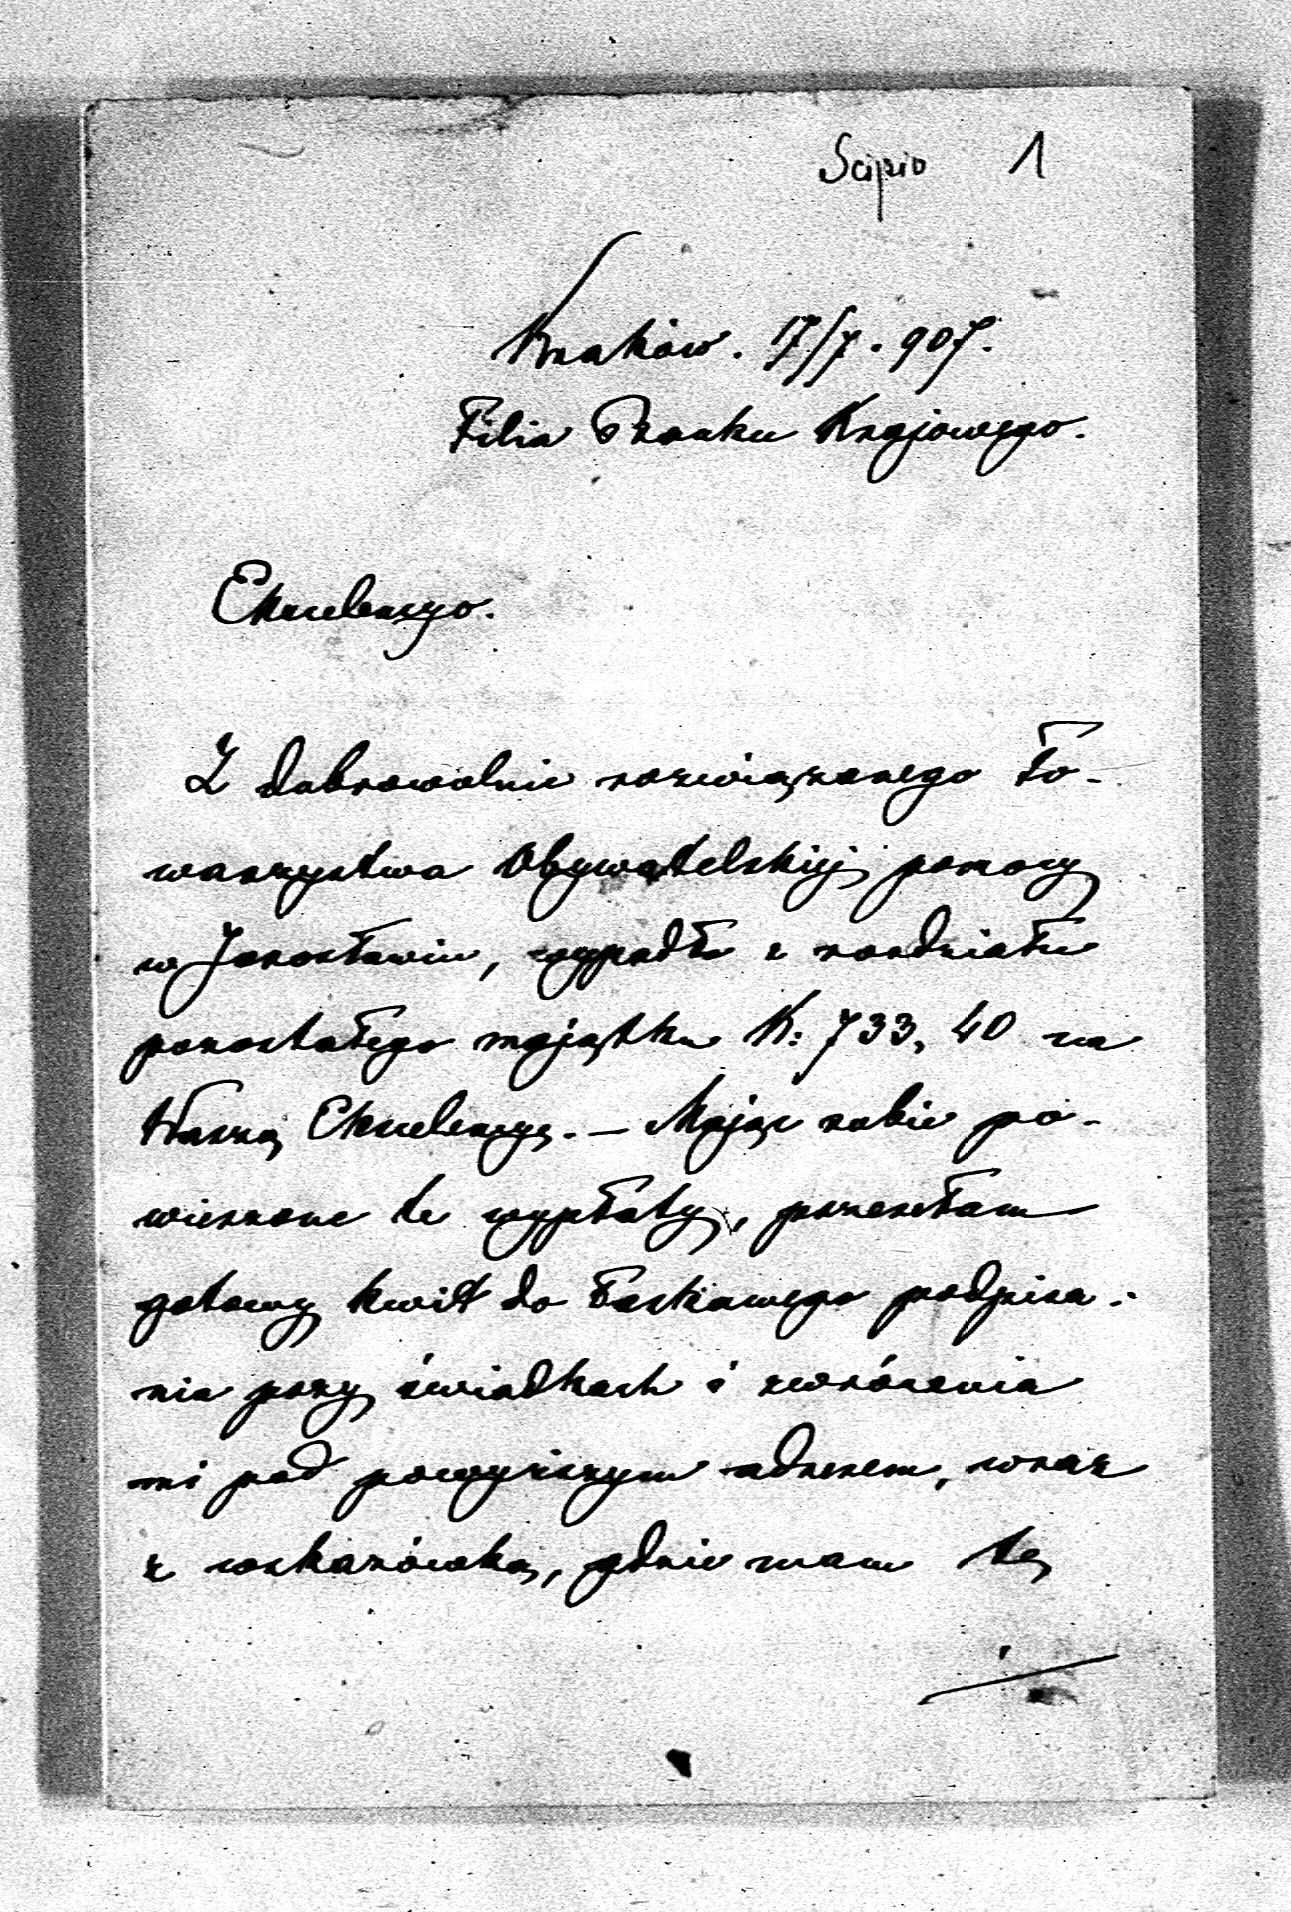 Scipio 1
Kraków. 17/7. 907.
Filia Banku Krajowego.
Ekscelencyo.
Z dobrowolnie rozwiązanego To-
warzystwa Obywatelskiej pomocy
w Jarosławiu, wypadło z rozdziału
pozostałego majątku K: 733,40 na
Waszą Ekscelencyę. – Mając sobie po-
wierzone te wypłaty, przesełam
gotowy kwit do łaskawego podpisa-
nia przy świadkach i zwrócenia
mi pod powyższym adresem, wraz
z wskazówką, gdzie mam tę